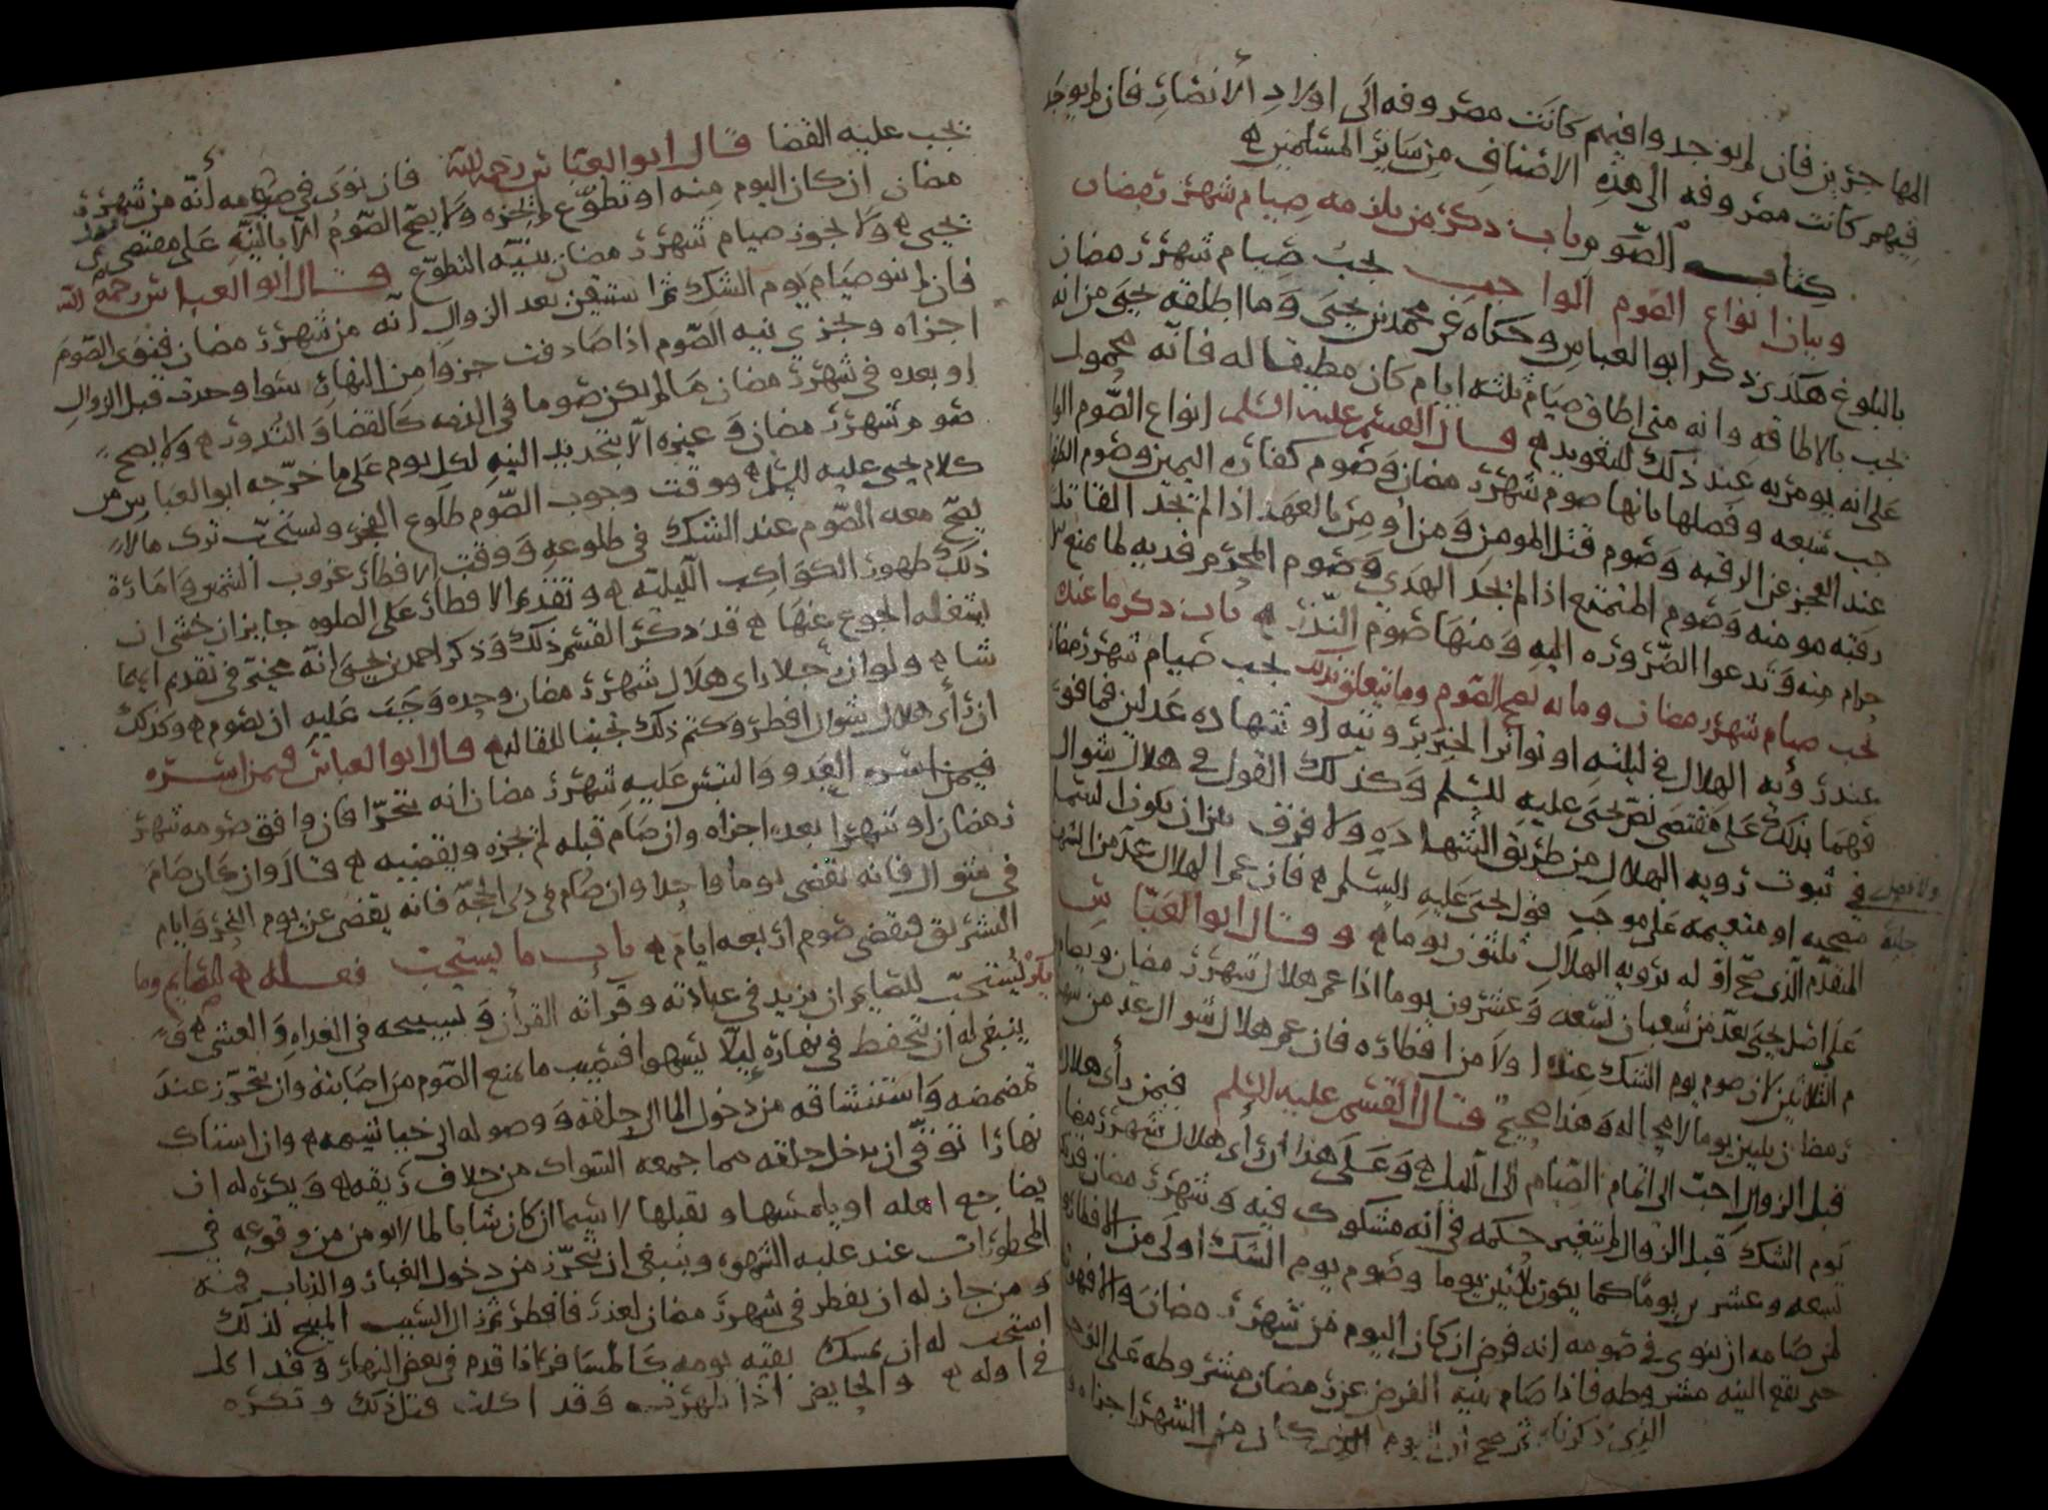 المهاجرين فان لم يوجد وافيهم كانت مصروفه الى اولاد الانصار فان لم يوجد
فيهم كانت مصروفه الى هذه الاصناف من سائر المسلمين
كتاب الصوم باب ذكر من يلزمه صيام شهر رمضان
وبيان انواع الصوم الواجب يجب صيام شهر رمضان
بالبلوغ هكذى ذكر ابو العباس وحكاه عن محمد بن يحيى وما اطلقه يحيى من انه
يجب بالاطاقه وانه متى اطاق صيام ثلثه ايام كان مطيقا له فانه محمول
على انه يومر به عند ذلك للتعويد قال القسم عليه السلم انواع الصوم الوا
جب سبعه وفصلها بانها صوم شهر رمضان وصوم كفاره اليمين وصوم الظهار
عند العجز عن الرقبه وصوم قتل المومن ومن اومن بالعهد اذا لم يجد القاتل
رقبه مومنه وصوم المتمتع اذا لم يجد الهدي وصوم المحرم فديه لما يمنع
حرام منه وتدعوا الضروره اليه ومنها صوم النذر باب ذكر ما عنده
يجب صيام شهر رمضان وما به يصح الصوم وما يتعلق بذلك يجب صيام شهر رمضان
عند رؤيه الهلال في ليلته او تواتر الخبر برؤيته او شهاده عدلين فما فوق
فهما بذلك على مقتضى نص يحيى عليه السلم وكذلك القول في هلال شوال
ولا فصل في ثبوت رويه الهلال من طريق الشهاده ولا فرق بين ان يكون السما
مصحيه او متغيمه على موجب قول يحيى عليه السلم فان غم الهلال عد من الشهر
المتقدم الذى صح اوله برويه الهلال ثلثون يوما وقال ابو العباس
على اصل يحيى يعد من شعبان تسعه وعشرون يوما اذا غم هلال شهر رمضان ويصام
يوم الثلاثين لان صوم يوم الشك عنده اولا من افطاره فان غم هلال شوال عد من شهر
رمضان ثلثين يوما لا محاله وهذا صحيح قال القسم عليه السلم فيمن رأى هلال
قبل الزوال احب الى اتمام الصيام الى الليل وعلى هذا ان رأى هلال شهر رمضان
يوم الشك قبل الزوال لم يتغير حكمه في انه مشكوك فيه وشهر رمضان قد يكون
تسعه وعشرين يوما كما يكون ثلاثين يوما وصوم يوم الشك اولى من الافطار
لمن صامه ان ينوى في صومه انه فرض ان كان اليوم من شهر رمضان والا فهو
حتى تقع النيه مشروطه فاذا صام بنيه الفرض عن رمضان مشروطه على الوجه
الذى ذكرنا ثم صح ان يوم الشك كان من الشهر اجزاه
يجب عليه القضا قال ابو العباس رحمه الله فان نوى في صومه أنه من شهر ر
مضان ان كان اليوم منه او تطوع لم يجزه ولا يصح الصوم الا بالنيه على مقتضى
يحيى ولا يجوز صيام شهر رمضان بنيه التطوع قال ابو العباس رحمه الله
فان لم ينو صيام يوم الشك ثم استيقن بعد الزوال انه من شهر رمضان فنوى الصوم
اجزاه ويجزي نيه الصوم اذا صادفت جزوا من النهار سوا وجدت قبل الزوال
او بعده في شهر رمضان ما لم يكن صوما في الذمه كالقضا والنذور ولا يصح
صوم شهر رمضان وغيره الا بتجديد النيه لكل يوم على ما خرجه ابو العباس من
كلام يحيى عليه السلم ووقت وجوب الصوم طلوع الفجر ويستحب ترك ما لا
يصح معه الصوم عند الشك في طلوعه ووقت الافطار غروب الشمس وامارة
ذلك ظهور الكواكب الليليه وتقديم الافطار على الصلوه جايز ان خشى ان
يشغله الجوع عنها قد ذكر القسم ذلك وذكر احمد بن يحيى انه مخير في تقديم ايهما
شا ولو ان رجلا راى هلال شهر رمضان وحده وجب عليه ان يصوم وكذلك
ان رأى هلال شوال افطر وكتم ذلك تجنبا للمقاله قال ابو العباس فيمن اسره
فيمن اسره العدو والتبس عليه شهر رمضان انه يتحرا فان وافق صومه شهر
رمضان او شهرا بعده اجزاه وان صام قبله لم يجزه ويقضيه قال وان كان صام
في شوال فانه يقضي يوما واحدا وان صام في ذى الحجه فانه يقضى عن يوم النحر وايام
التشريق فيقضى صوم اربعه ايام باب ما يستحب فعله للصايم وما
يكره يستحب للصايم ان يزيد في عبادته وقرأته القرأن وتسبيحه في الغداه والعشى و
ينبغي له ان يتحفظ في نهاره ليلا يسهوا فيصيب ما يمنع الصوم من اصابته وان يتحرز عند
تمضمضه واستنشاقه من دخول الما الى حلقه ووصوله الى خياشيمه وان استاك
نهارا توقى ان يدخل حلقه مما جمعه السواك من خلاف ريقه ويكره له ان
يضاجع اهله او يلمسها او يقبلها لا سيما ان كان شابا لما لا يومن من وقوعه في
المحظورات عند غلبه الشهوه وينبغى ان يتحرز من دخول الغبار والذباب فمه
ومن جاز له ان يفطر في شهر رمضان لعذر فافطر ثم زال السبب المبيح لذلك
استحب له ان يمسك بقيه يومه كالمسافر اذا قدم في بعض النهار وقد اكل
في اوله والحايض اذا طهرت وقد اكلت قبل ذلك وتكره